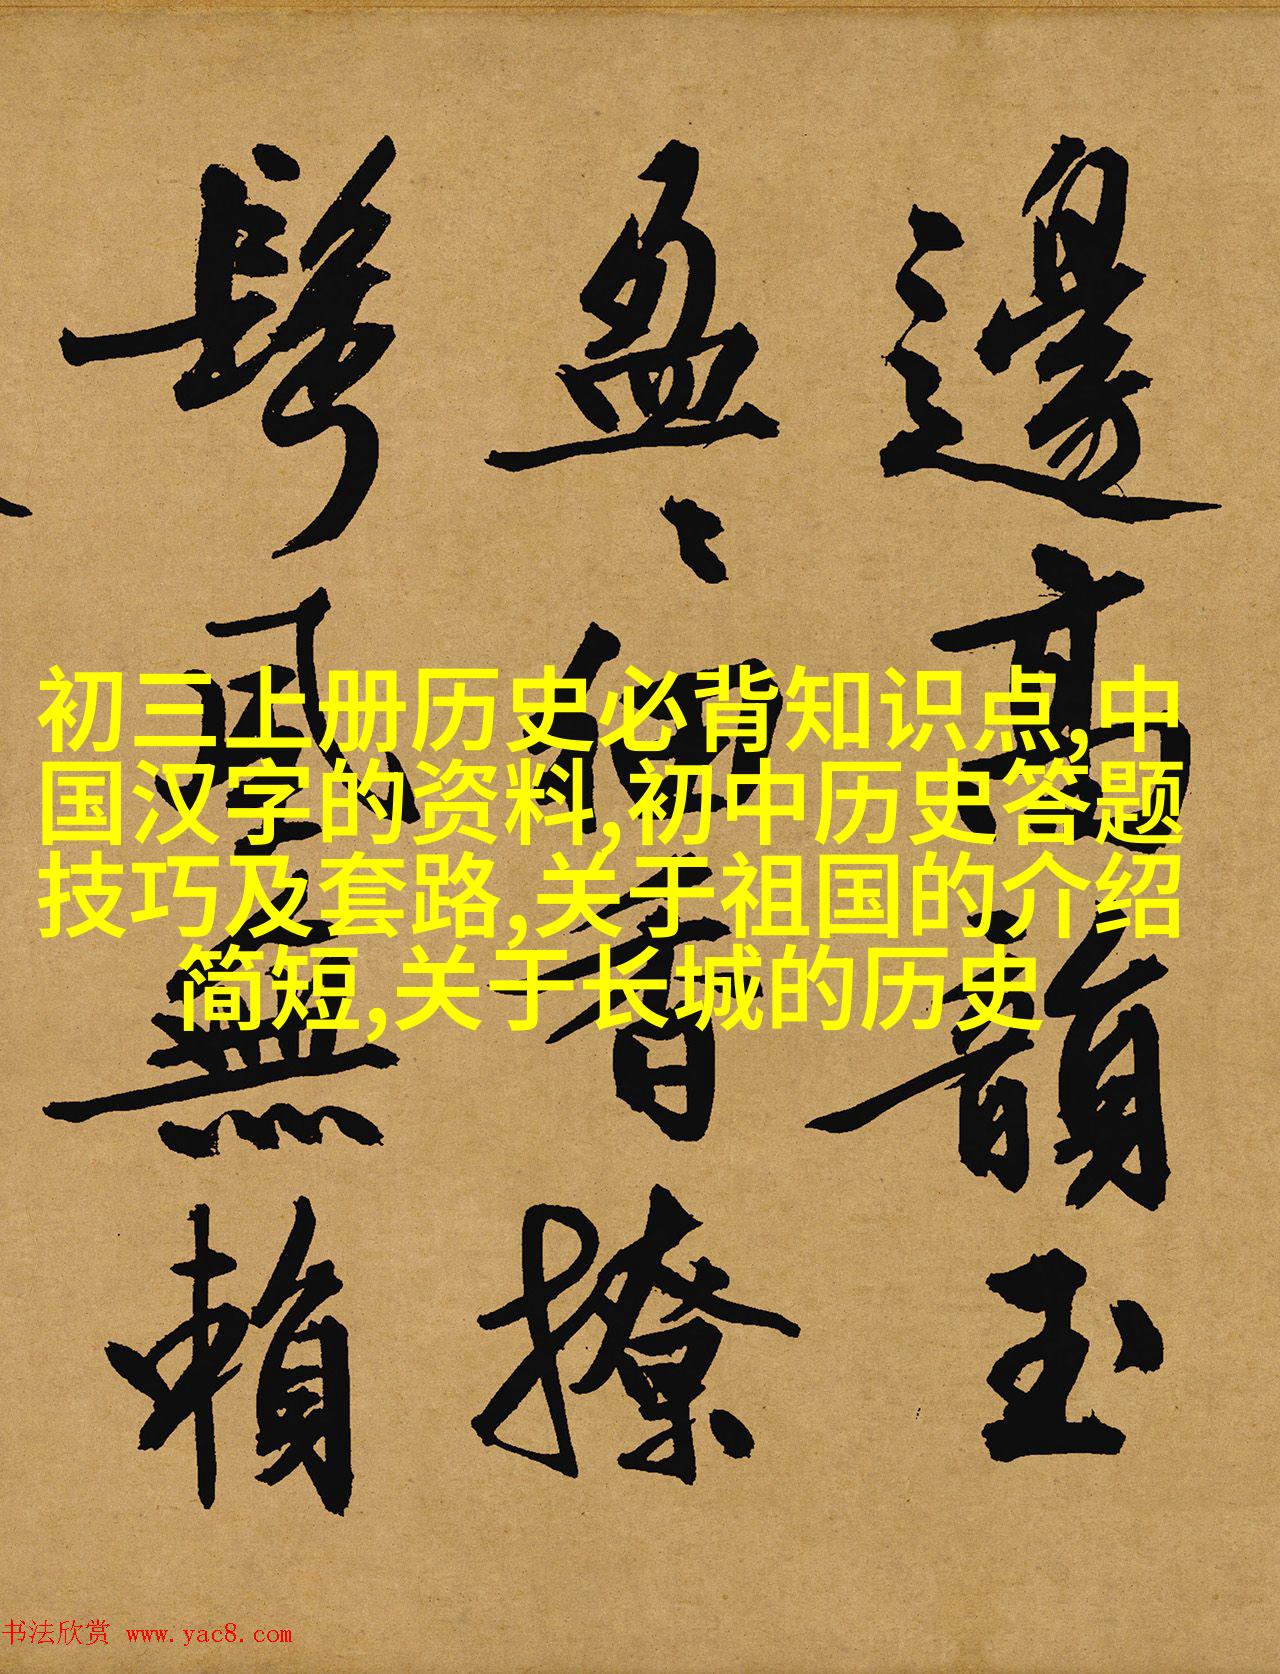 邊高韻玉
盈〻細香撩
鬢風無賴
初三上册历史必背知识点,中
国汉字的资料,初中历史答题
技巧及套路,关于祖国的介绍
简短,关于长城的历史
书法欣赏 www.yac8.com